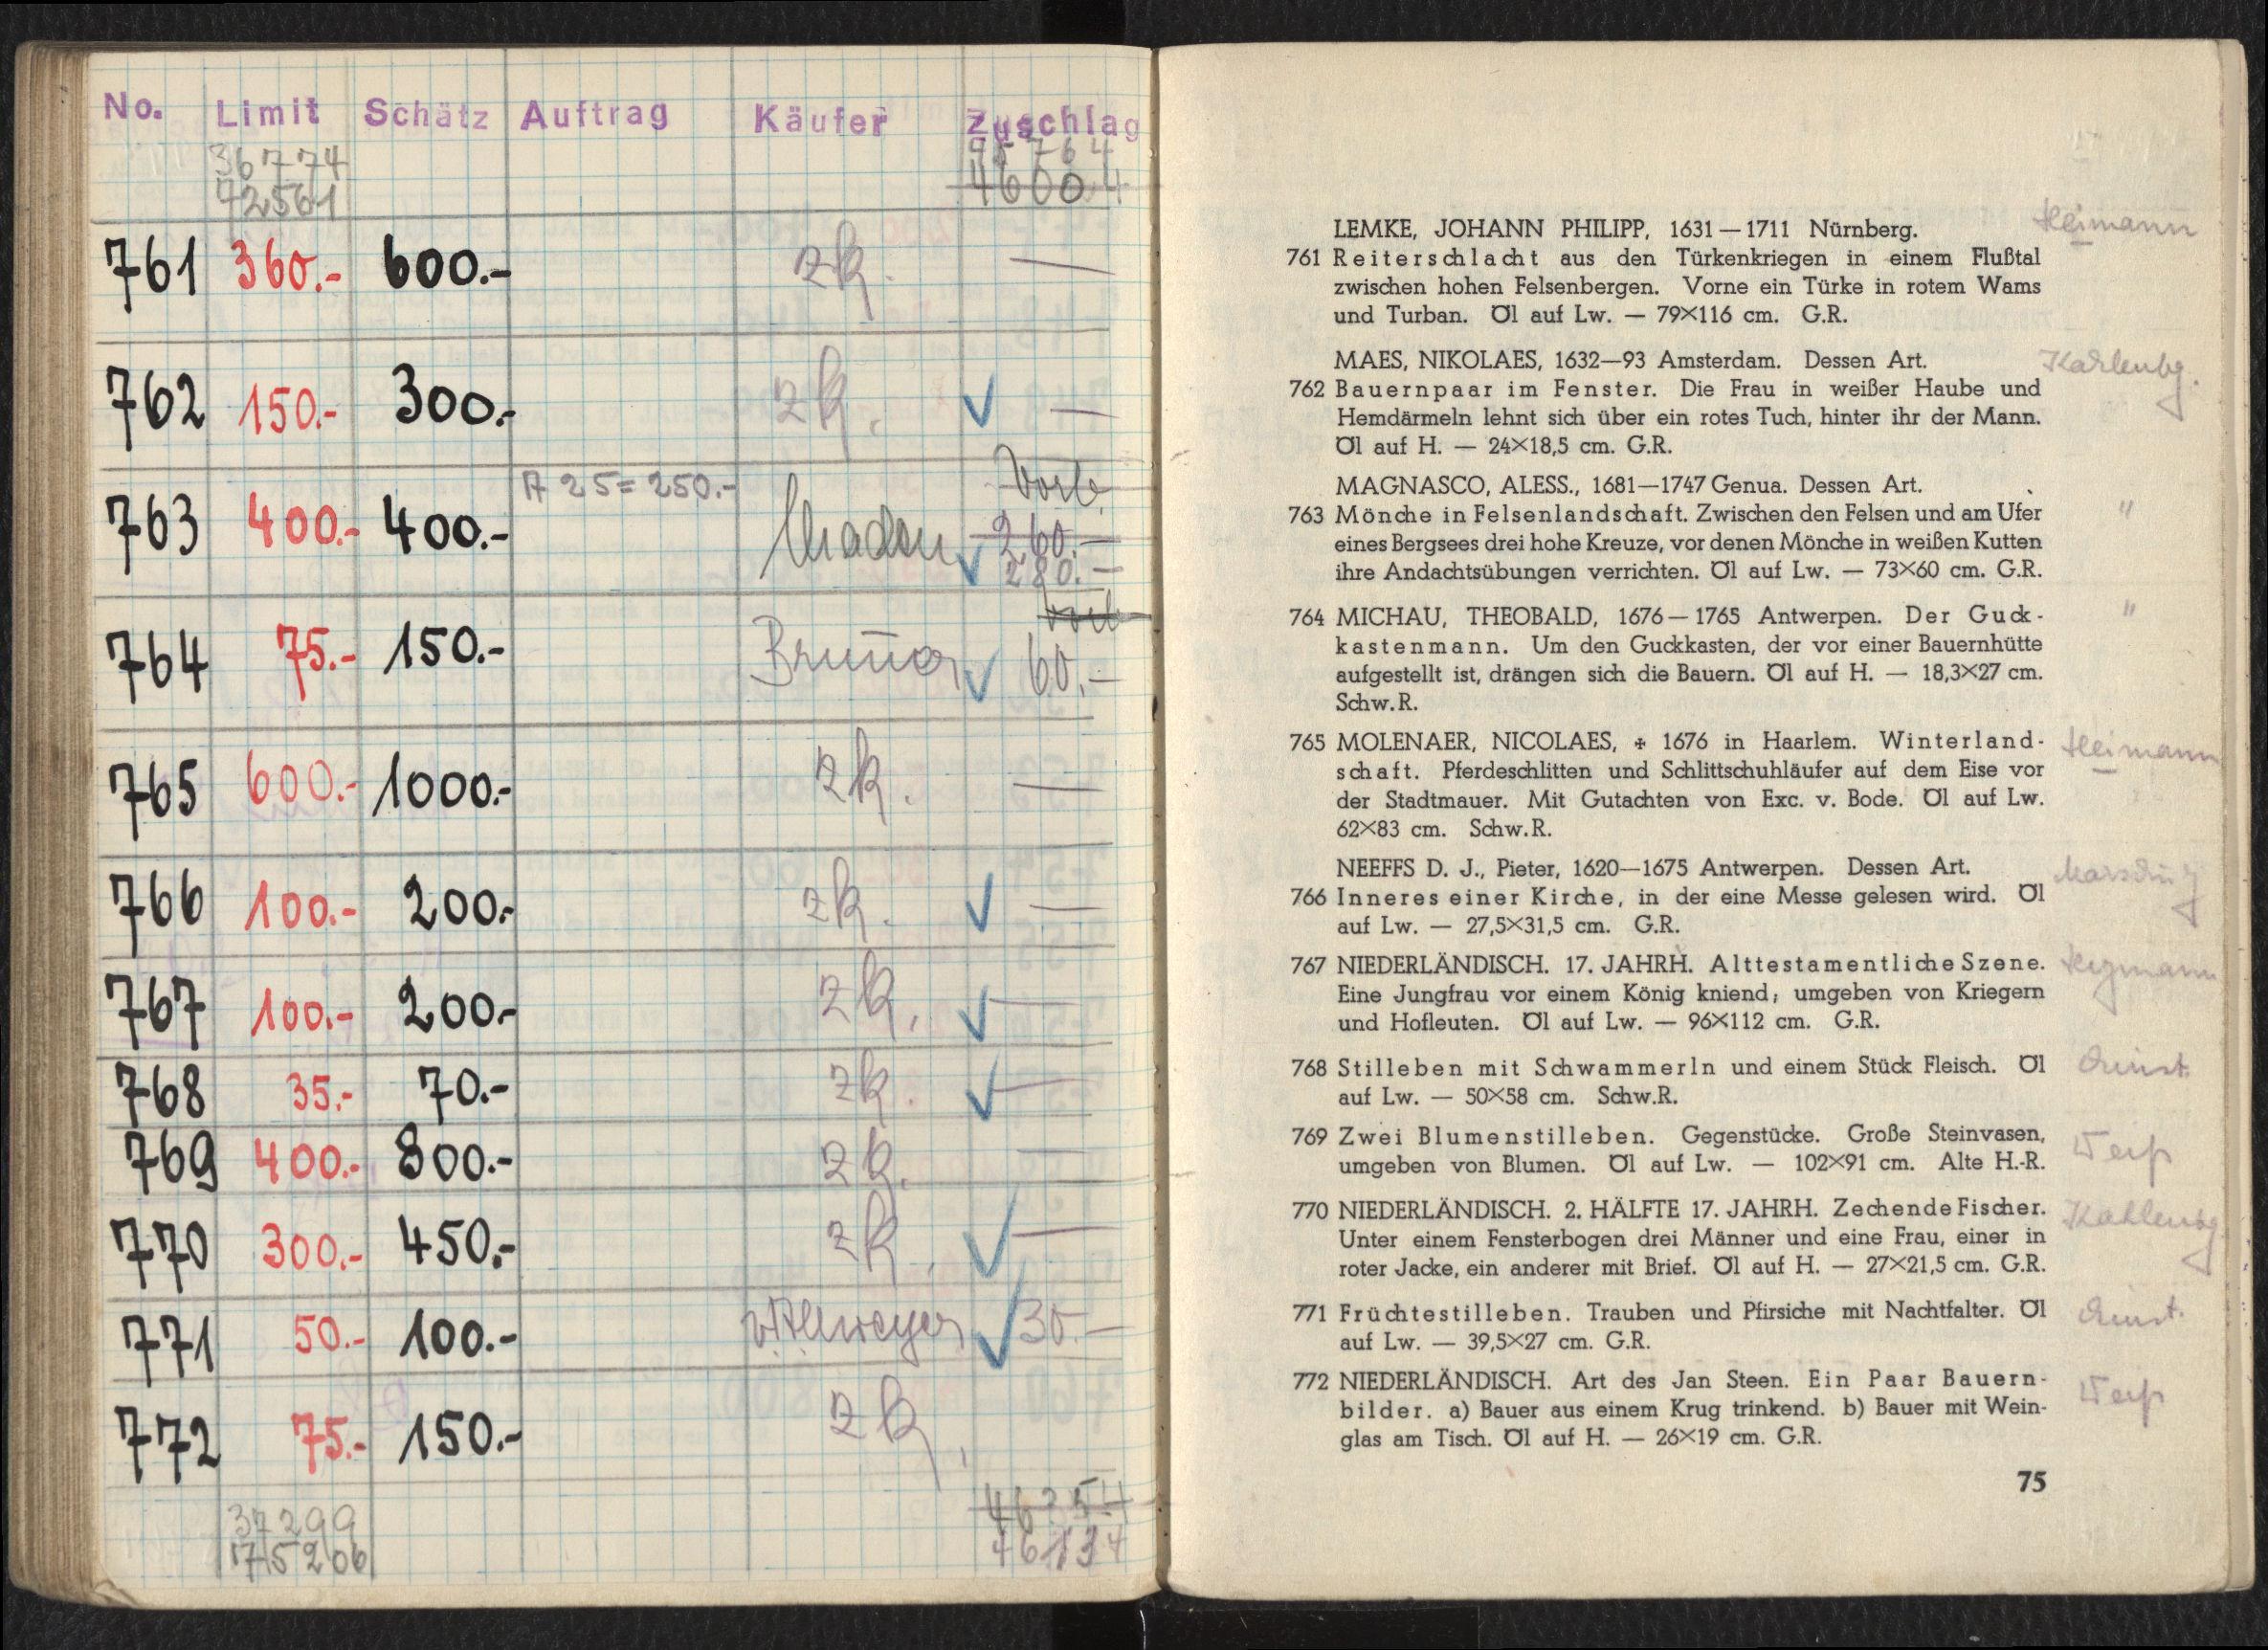 No. Limit Schätz Auftrag Käufer Zuschlag
36774
72561 46004
761 360.- 600.- zk. —
762 150.- 300.- zk. —
A 25 = 250.- Vorb.
763 400.- 400.- 260.-
280.-
764 75.- 150.- Brunner 60.-
765 600.- 1000.- zk. —
766 100.- 200.- zk. —
767 100.- 200.- zk. —
768 35.- 70.- zk. —
769 400.- 800.- zk. —
770 300.- 450.- zk. —
771 50.- 100.- 30.-
772 75.- 150.- zk.
37299
75206 46134
LEMKE, JOHANN PHILIPP, 1631—1711 Nürnberg. Heimann
761 Reiterschlacht aus den Türkenkriegen in einem Flußtal
zwischen hohen Felsenbergen. Vorne ein Türke in rotem Wams
und Turban. Öl auf Lw. — 79×116 cm. G.R.
MAES, NIKOLAES, 1632—93 Amsterdam. Dessen Art. Kahlenbg.
762 Bauernpaar im Fenster. Die Frau in weißer Haube und
Hemdärmeln lehnt sich über ein rotes Tuch, hinter ihr der Mann.
Öl auf H. — 24×18,5 cm. G.R.
MAGNASCO, ALESS., 1681—1747 Genua. Dessen Art.
763 Mönche in Felsenlandschaft. Zwischen den Felsen und am Ufer "
eines Bergsees drei hohe Kreuze, vor denen Mönche in weißen Kutten
ihre Andachtsübungen verrichten. Öl auf Lw. — 73×60 cm. G.R.
764 MICHAU, THEOBALD, 1676—1765 Antwerpen. Der Guck- "
kastenmann. Um den Guckkasten, der vor einer Bauernhütte
aufgestellt ist, drängen sich die Bauern. Öl auf H. — 18,3×27 cm.
Schw.R.
765 MOLENAER, NICOLAES, ✠ 1676 in Haarlem. Winterland- Heimann
schaft. Pferdeschlitten und Schlittschuhläufer auf dem Eise vor
der Stadtmauer. Mit Gutachten von Exc. v. Bode. Öl auf Lw.
62×83 cm. Schw.R.
NEEFFS D. J., Pieter, 1620—1675 Antwerpen. Dessen Art.
766 Inneres einer Kirche, in der eine Messe gelesen wird. Öl
auf Lw. — 27,5×31,5 cm. G.R.
767 NIEDERLÄNDISCH. 17. JAHRH. Alttestamentliche Szene.
Eine Jungfrau vor einem König kniend, umgeben von Kriegern
und Hofleuten. Öl auf Lw. — 96×112 cm. G.R.
768 Stilleben mit Schwammerln und einem Stück Fleisch. Öl
auf Lw. — 50×58 cm. Schw.R.
769 Zwei Blumenstilleben. Gegenstücke. Große Steinvasen, Weiß
umgeben von Blumen. Öl auf Lw. — 102×91 cm. Alte H.-R.
770 NIEDERLÄNDISCH. 2. HÄLFTE 17. JAHRH. Zechende Fischer. Kahlenbg
Unter einem Fensterbogen drei Männer und eine Frau, einer in
roter Jacke, ein anderer mit Brief. Öl auf H. — 27×21,5 cm. G.R.
771 Früchtestilleben. Trauben und Pfirsiche mit Nachtfalter. Öl
auf Lw. — 39,5×27 cm. G.R.
772 NIEDERLÄNDISCH. Art des Jan Steen. Ein Paar Bauern- Weiß
bilder. a) Bauer aus einem Krug trinkend. b) Bauer mit Wein-
glas am Tisch. Öl auf H. — 26×19 cm. G.R.
75